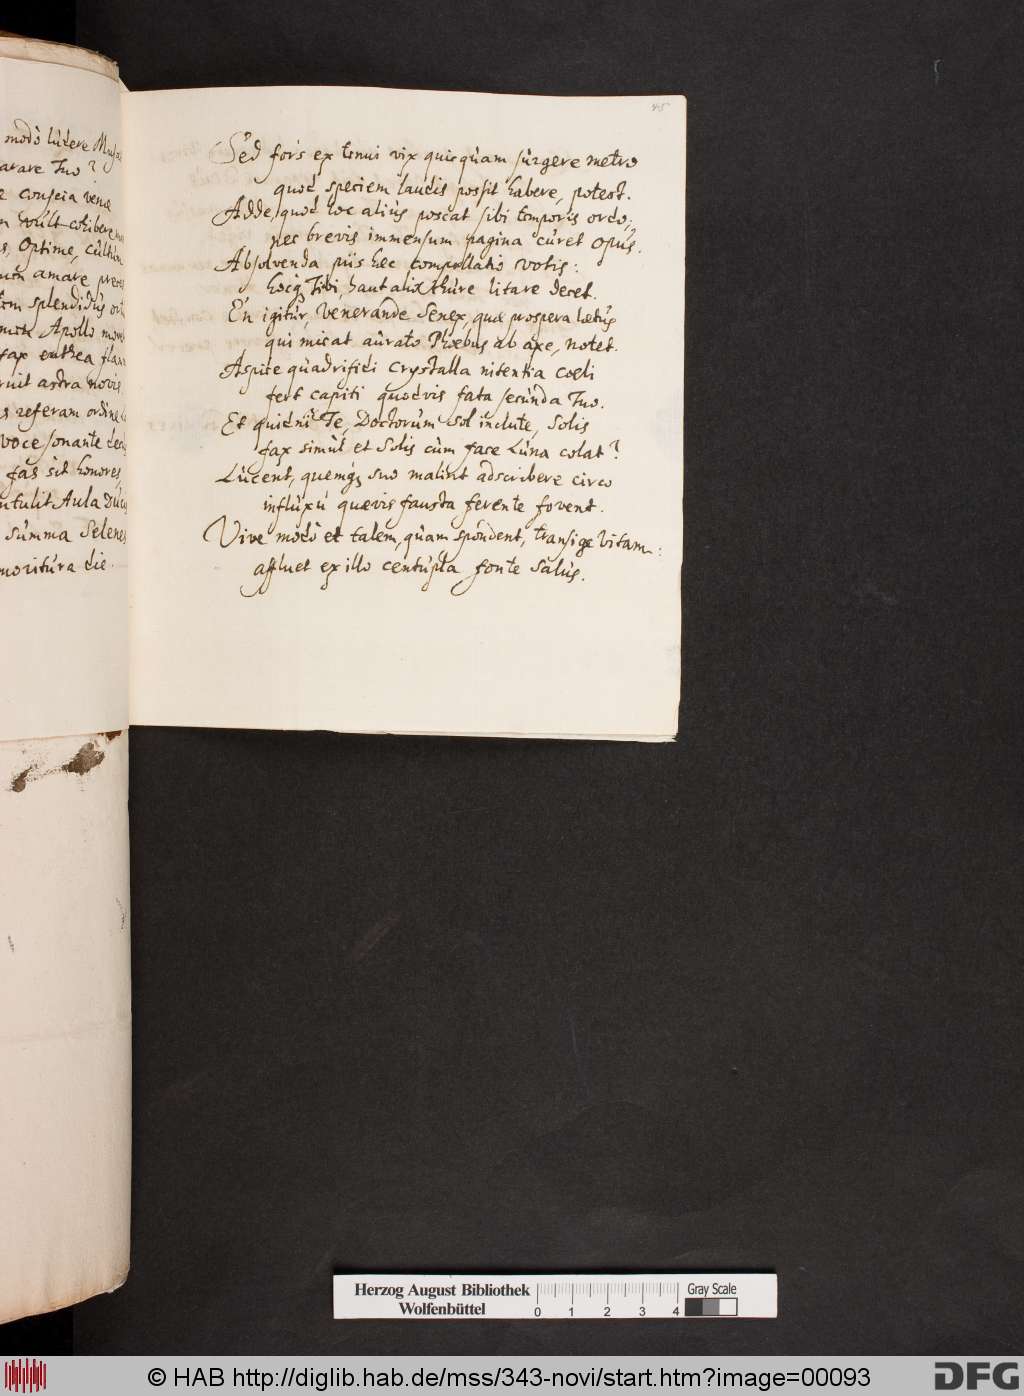 modò lúdere Musa
arare Tuo?
conscia venæ
vúlt cohibere
Optime, cúltum
amare preces
splendidús
Apollo
fax enthea
astra novis
referam ordine
voce sonante
fás sit honores,
Aula Dúcu
súmma Selenes
moritúra die.
45
Sed fors ex tenui vix quicquam súrgere metro
quod speciem laudis possit habere, potest.
Adde, quod hoc aliús poscat sibi temporis ordo,
nec brevis immensum pagina cúret opús.
Absolvenda piis hæc compellatio votis:
hocq́ Tibi, haut aliô thúre litare decet.
En igitúr, Venerande Senex, quæ prospera lætús
qui micat aúrato Phœbus ab axe, notet.
Aspice qúadrifidi Crystalla nitentia cœli
fert capiti quodvis fata secúnda Tuo.
Et quidnii Te, Doctorúm Sol inclute, Solis
fax simúl et Solis cùm face Lúna colat?
Lúcent, quemq́ suo malint adscribere circo
inflúxú quævis fausta ferente fovent.
Vive modò et talem, qúam spondent, transige vitam:
affluet ex illo centúpla fonte Salús.
Herzog August Bibliothek
Wolfenbüttel
0 1 2 3 4
Gray Scale
© HAB http://diglib.hab.de/mss/343-novi/start.htm?image=00093
DFG